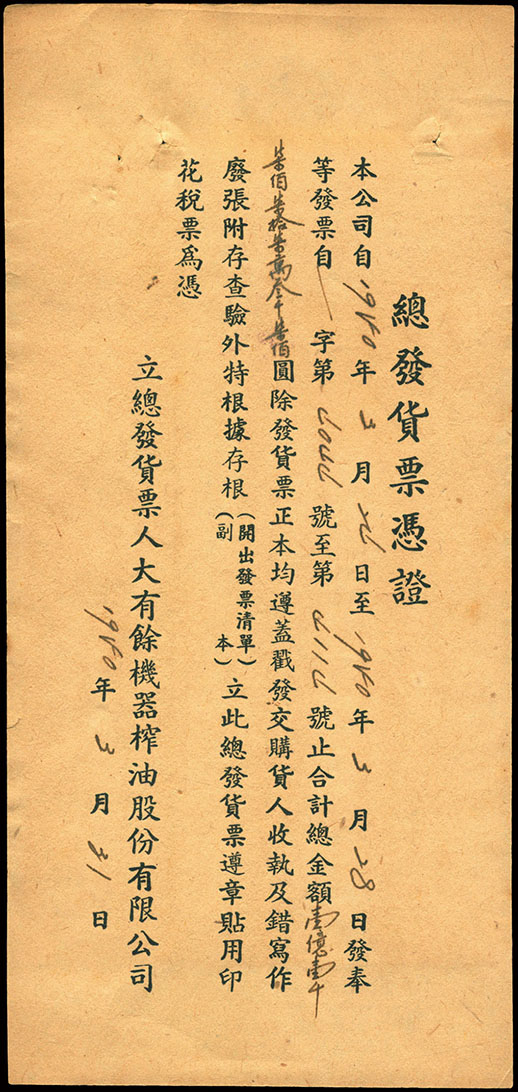 總發貨票憑證
本公司自1950年3月日至1950年3月28日發奉
等發票自字第號至第號止合計總金額壹億壹千
柒佰柒拾柒萬叁千柒佰圓除發貨票正本均遵蓋戳發交購貨人收執及錯寫作
廢張附存查驗外特根據存根(開出發票清單)(副本)立此總發貨票遵章貼用印
花稅票爲憑
立總發貨票人大有餘機器榨油股份有限公司
1950年3月31日